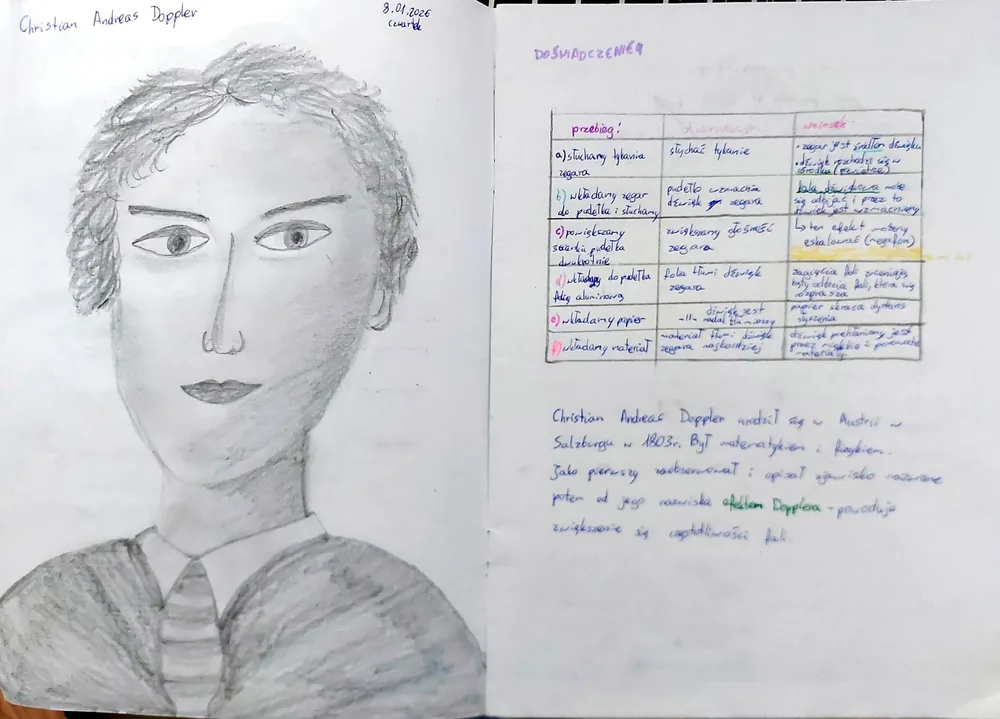 Christian Andreas Doppler
8.01.2026
czwartek
DOŚWIADCZENIE
przebieg:
wniosek:
a) słuchamy tykania
zegara
słychać tykanie
• zegar jest źródłem dźwięku
• dźwięk rozchodzi się w
ośrodku (powietrze)
b) wkładamy zegar
do pudełka i słuchamy
pudełko wzmacnia
dźwięk zegara
fala dźwiękowa może
się odbijać i przez to
dźwięk jest wzmacniany
c) powiększamy
ścianki pudełka
dwukrotnie
zwiększamy głośność
zegara
↳ ten efekt możemy
zeskalować (megafon)
d) wkładamy do pudełka
folię aluminiową
folia tłumi dźwięk
zegara
zagięcia folii zmieniają
kąty odbicia fali, która się
rozprasza
e) wkładamy papier
dźwięk jest
-||- nadal tłumiony
papier skraca dystans
słyszenia
f) wkładamy materiał
materiał tłumi dźwięk
zegara najbardziej
dźwięk pochłaniany jest
przez miękkie i porowate
materiały
Christian Andreas Doppler urodził się w Austrii w
Salzburgu w 1803r. Był matematykiem i fizykiem.
Jako pierwszy zaobserwował i opisał zjawisko nazwane
potem od jego nazwiska efektem Dopplera - powoduje
zwiększenie się częstotliwości fali.